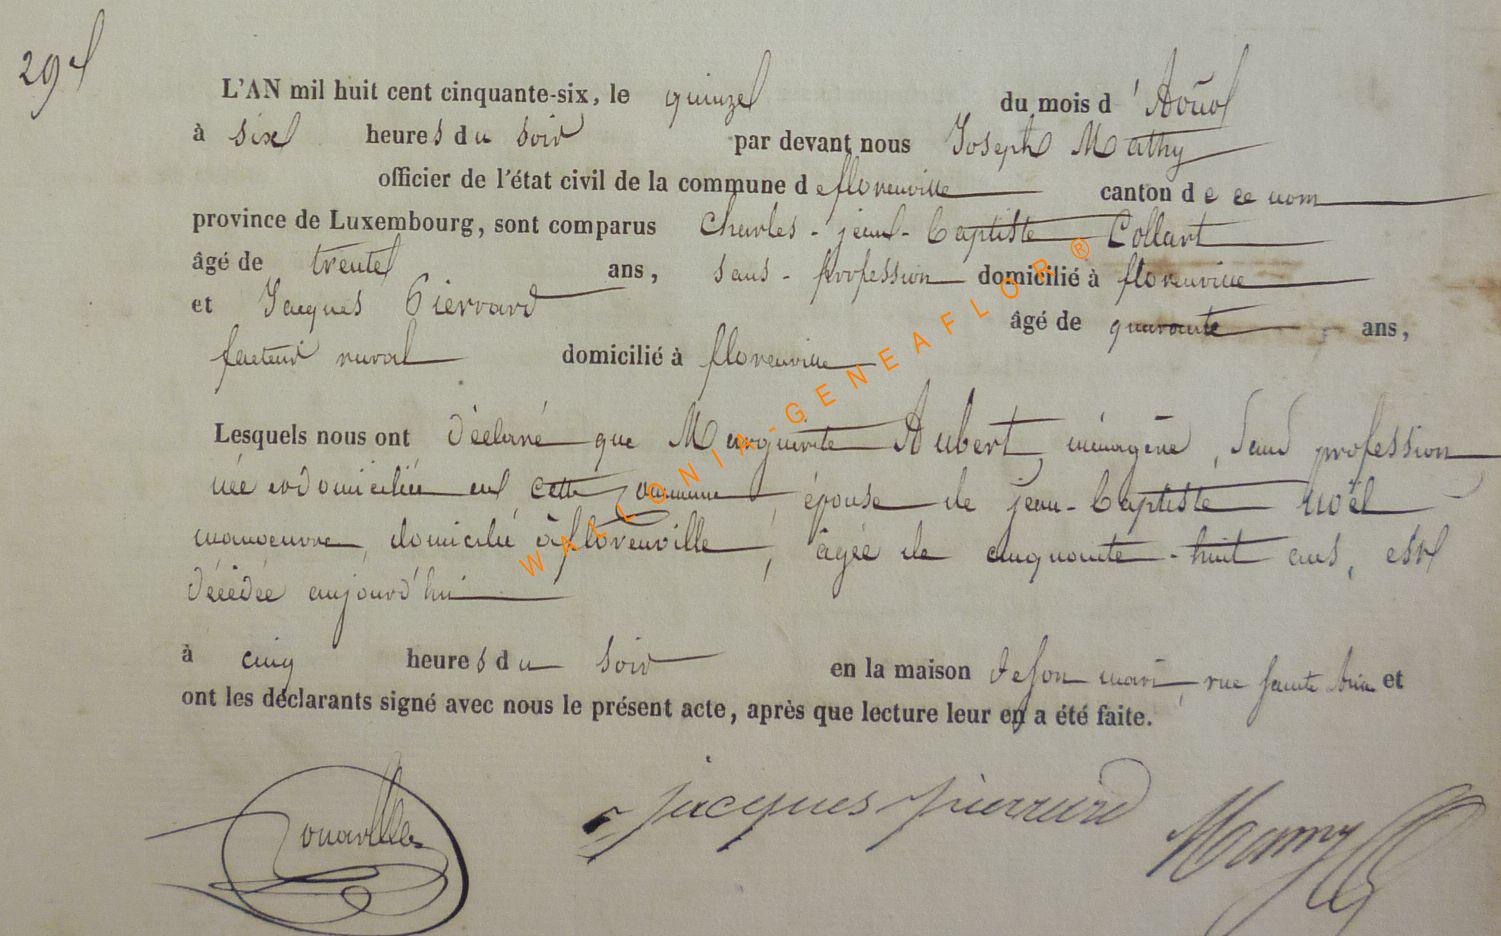 29
L'AN mil huit cent cinquante-six, le quinze du mois d'Août
à six heures du soir par devant nous Joseph Mathy
officier de l'état civil de la commune de florenville canton de ce nom
province de Luxembourg, sont comparus Charles-jean-baptiste Collart
âgé de trente ans, sans-profession domicilié à florenville
et Jacques Pierrard âgé de quarante ans,
facteur rural domicilié à florenville
Lesquels nous ont déclaré que Marguerite Aubert, ménagère, sans profession
née et domiciliée en cette commune, épouse de jean-baptiste Noël
manoeuvre, domicilié à florenville, âgée de cinquante-huit ans, est
décédée aujourd'hui
à cinq heures du soir en la maison de son mari, rue sainte et
ont les déclarants signé avec nous le présent acte, après que lecture leur en a été faite.
jacques pierrard
WALLONIA-GENEAFLOR®